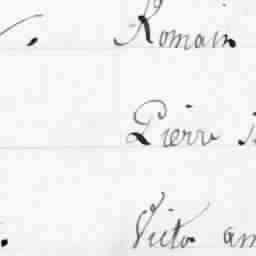 Romain
Pierre
Victor am